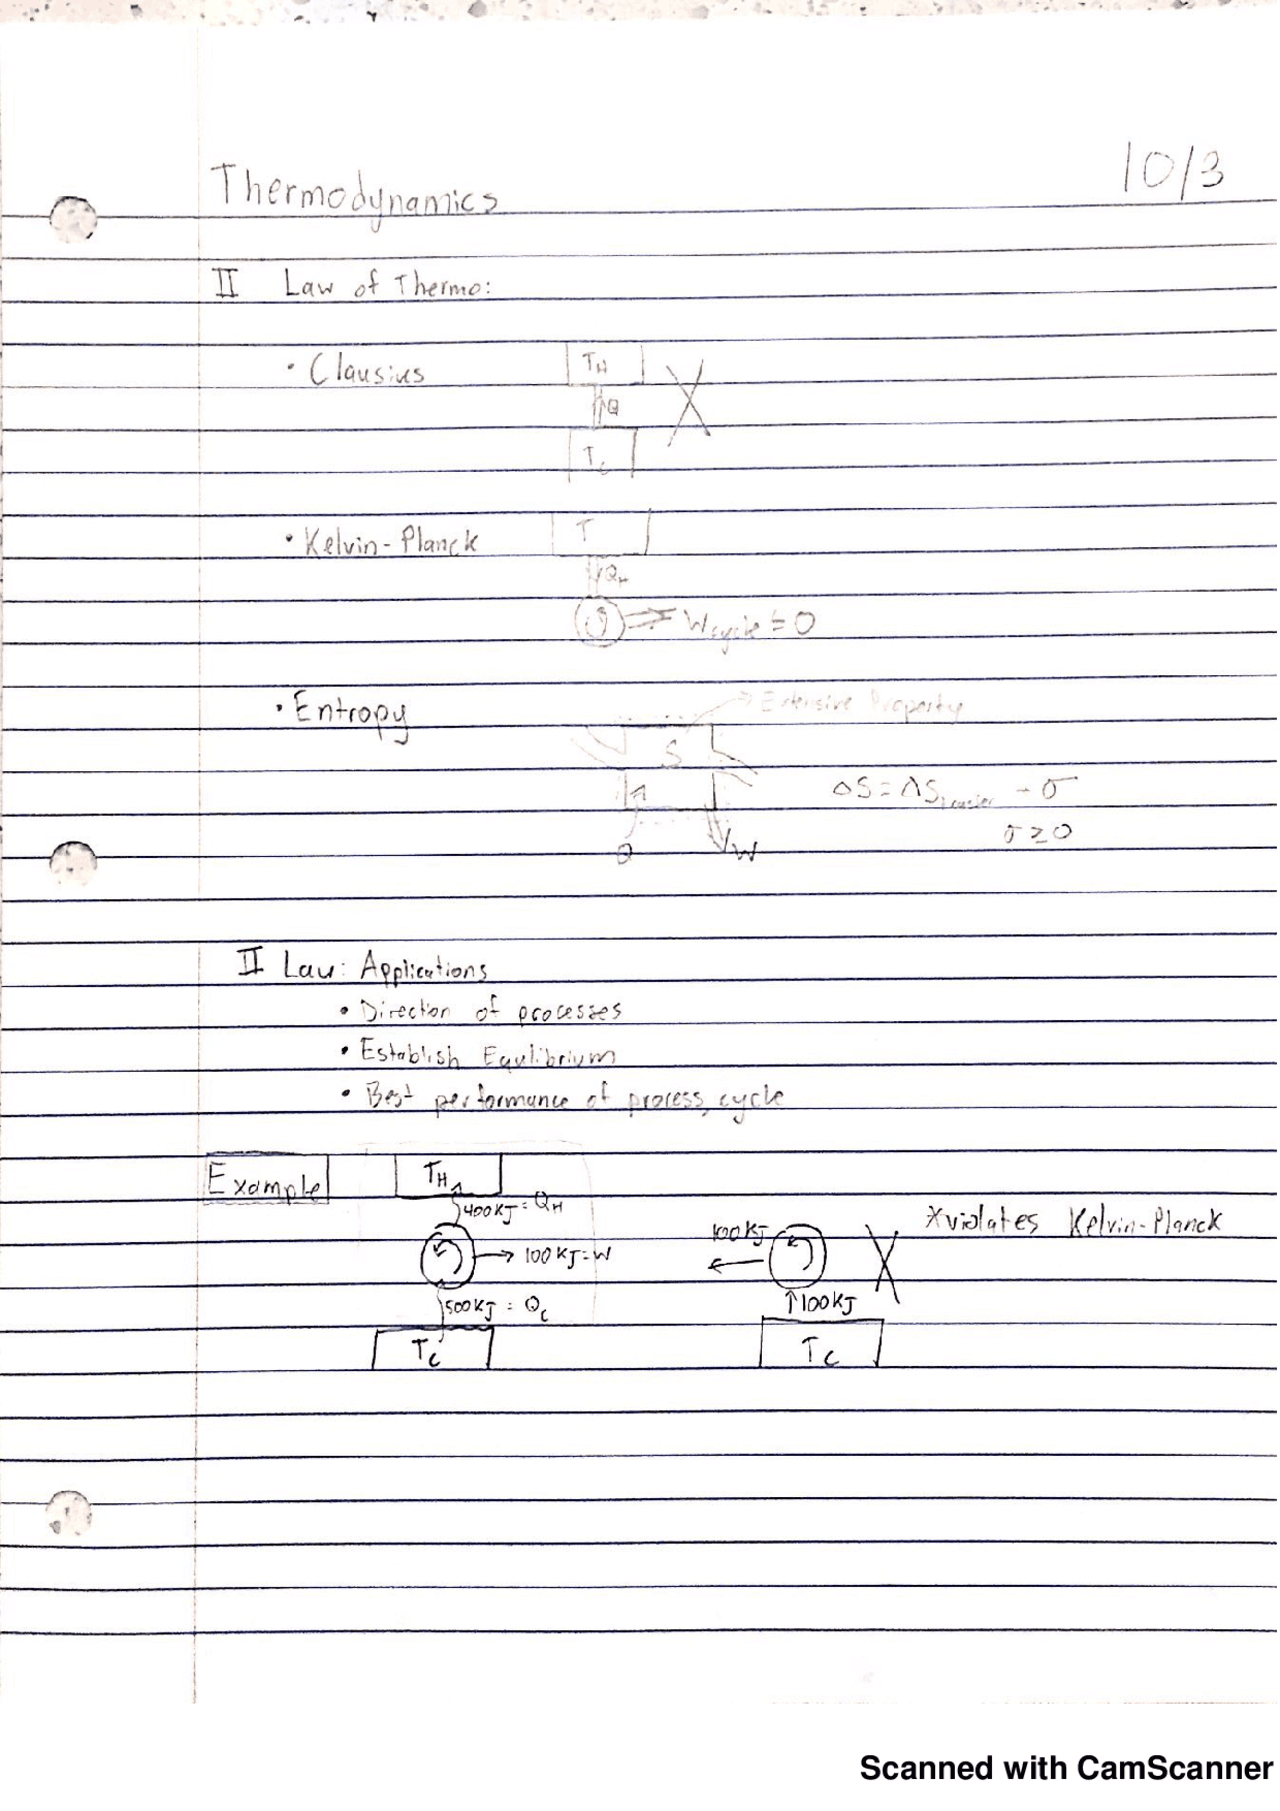 Thermodynamics 10/3
II Law of Thermo:
• Clausius
TH
Q
TC
• Kelvin-Planck
T
QH
Wcycle = 0
• Entropy
→ Extensive Property
S
Q
W
ΔS = ΔS - σ
σ ≥ 0
II Law: Applications
• Direction of processes
• Establish Equlibrium
• Best performance of process, cycle
Example
TH
400KJ = QH
100KJ = W
500KJ = QC
TC
100KJ
↑100KJ
TC
*violates Kelvin-Planck
Scanned with CamScanner